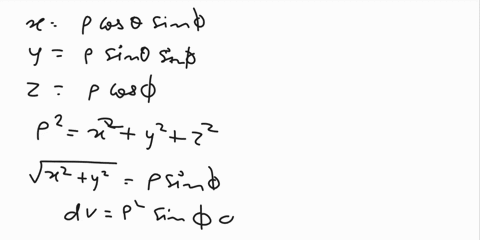 x = ρ cos θ sin ϕ
y = ρ sin θ sin ϕ
z = ρ cos ϕ
ρ² = x² + y² + z²
√(x² + y²) = ρ sin ϕ
dv = ρ² sin ϕ